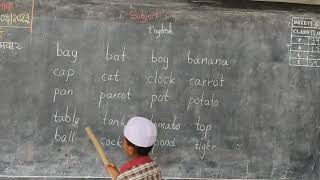 Subject
English
bag bat boy banana
cap cat clock carrot
pan parrot pot potato
table tank tomato top
ball cock pond tiger